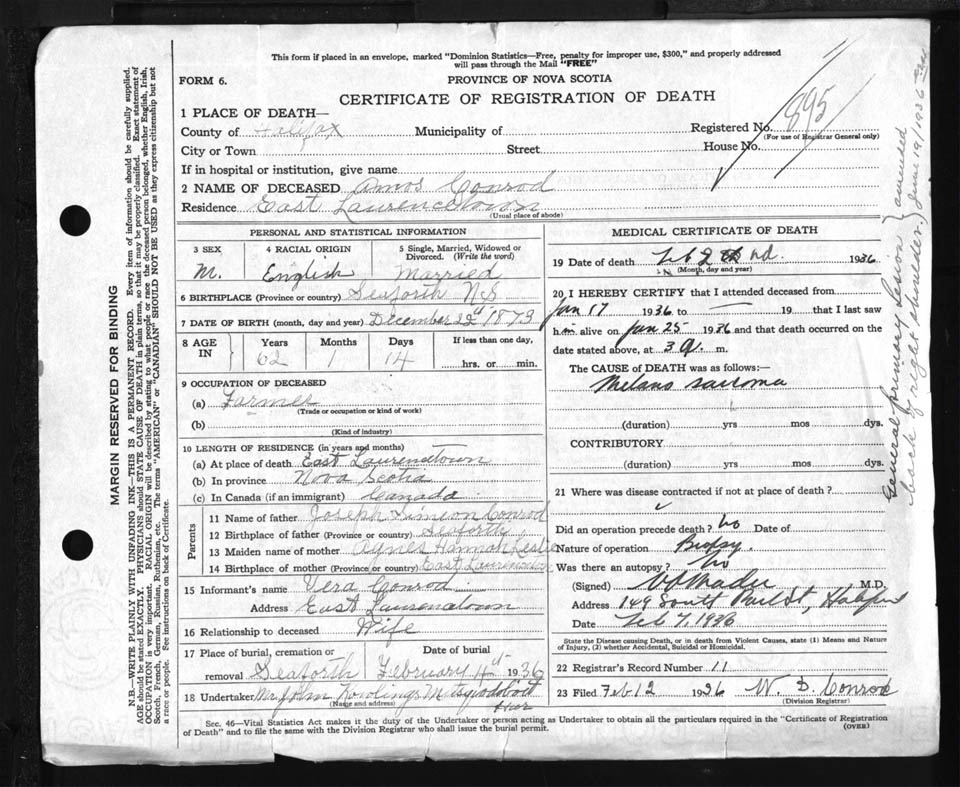 This form if placed in an envelope, marked "Dominion Statistics—Free, penalty for improper use, $300," and properly addressed
will pass through the Mail "FREE"
FORM 6.
PROVINCE OF NOVA SCOTIA
CERTIFICATE OF REGISTRATION OF DEATH
1 PLACE OF DEATH—
County of Halifax Municipality of Registered No. 895
(For use of Registrar General only)
City or Town Street House No.
If in hospital or institution, give name
2 NAME OF DECEASED Amos Conrod
Residence East Laurencetown
(Usual place of abode)
PERSONAL AND STATISTICAL INFORMATION
3 SEX 4 RACIAL ORIGIN 5 Single, Married, Widowed or
Divorced. (Write the word)
M. English Married
6 BIRTHPLACE (Province or country) Seaforth N.S
7 DATE OF BIRTH (month, day and year) December 22nd 1873
8 AGE
IN
Years Months Days If less than one day,
62 1 14 hrs. or min.
9 OCCUPATION OF DECEASED
(a) Farmer
(Trade or occupation or kind of work)
(b)
(Kind of industry)
10 LENGTH OF RESIDENCE (in years and months)
(a) At place of death East Laurencetown
(b) In province Nova Scotia
(c) In Canada (if an immigrant) Canada
Parents
11 Name of father Joseph Simeon Conrod
12 Birthplace of father (Province or country) Seaforth
13 Maiden name of mother Agnes Hannah Leslie
14 Birthplace of mother (Province or country) East Laurencetown
15 Informant's Name Vera Conrod
Address East Laurencetown
16 Relationship to deceased Wife
17 Place of burial, cremation or Date of burial
removal Seaforth February 4th 1936
18 Undertaker Mr John Rowlings Musquodoboit
(Name and address) Har
MEDICAL CERTIFICATE OF DEATH
19 Date of death Feb 2nd. 1936
(Month, day and year)
20 I HEREBY CERTIFY that I attended deceased from
Jan 17 1936 to — 19 that I last saw
him alive on Jan 25 1936 and that death occurred on the
date stated above, at 3 a. m.
The CAUSE of DEATH was as follows:—
Melano sarcoma
(duration) yrs mos dys.
CONTRIBUTORY
(duration) yrs. mos. dys.
21 Where was disease contracted if not at place of death?
Did an operation precede death? No Date of
Nature of operation Biopsy.
Was there an autopsy? No
(Signed) V O Mader M.D.
Address 149 South Park St, Halifax
Date Feb 7, 1936
State the Disease causing Death, or in death from Violent Causes, state (1) Means and Nature
of Injury, (2) whether Accidental, Suicidal or Homicidal.
22 Registrar's Record Number 11
23 Filed Feb 12 1936 W. B. Conrod
(Division Registrar)
Sec. 46—Vital Statistics Act makes it the duty of the Undertaker or person acting as Undertaker to obtain all the particulars required in the "Certificate of Registration
of Death" and to file the same with the Division Registrar who shall issue the burial permit.
(OVER)
MARGIN RESERVED FOR BINDING
N.B.—WRITE PLAINLY WITH UNFADING INK—THIS IS A PERMANENT RECORD. Every item of information should be carefully supplied.
AGE should be stated EXACTLY. PHYSICIANS should STATE CAUSE OF DEATH in plain terms, so that it may be properly classified. Exact statement of
OCCUPATION is very important. RACIAL ORIGIN will be described by stating to what people or race the deceased person belonged, whether English, Irish,
Scotch, French, German, Russian, Ruthenian, etc. The terms "AMERICAN" or "CANADIAN" SHOULD NOT BE USED as they express citizenship but not
a race or people. See instructions on back of Certificate.
General primary lesion } amended
back of right shoulder. } June 19/1936